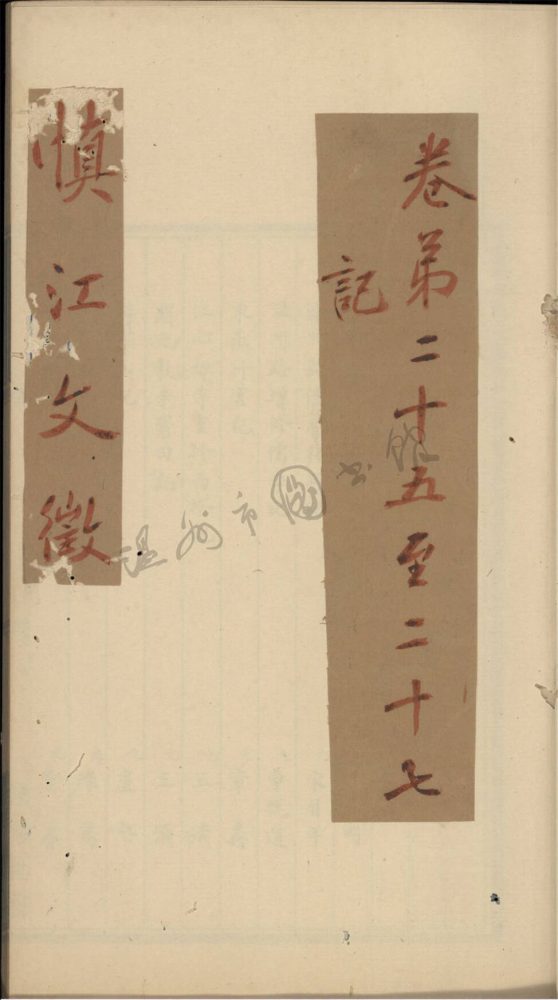 卷弟二十五至二十七
記
慎江文徵
温州市圖书館